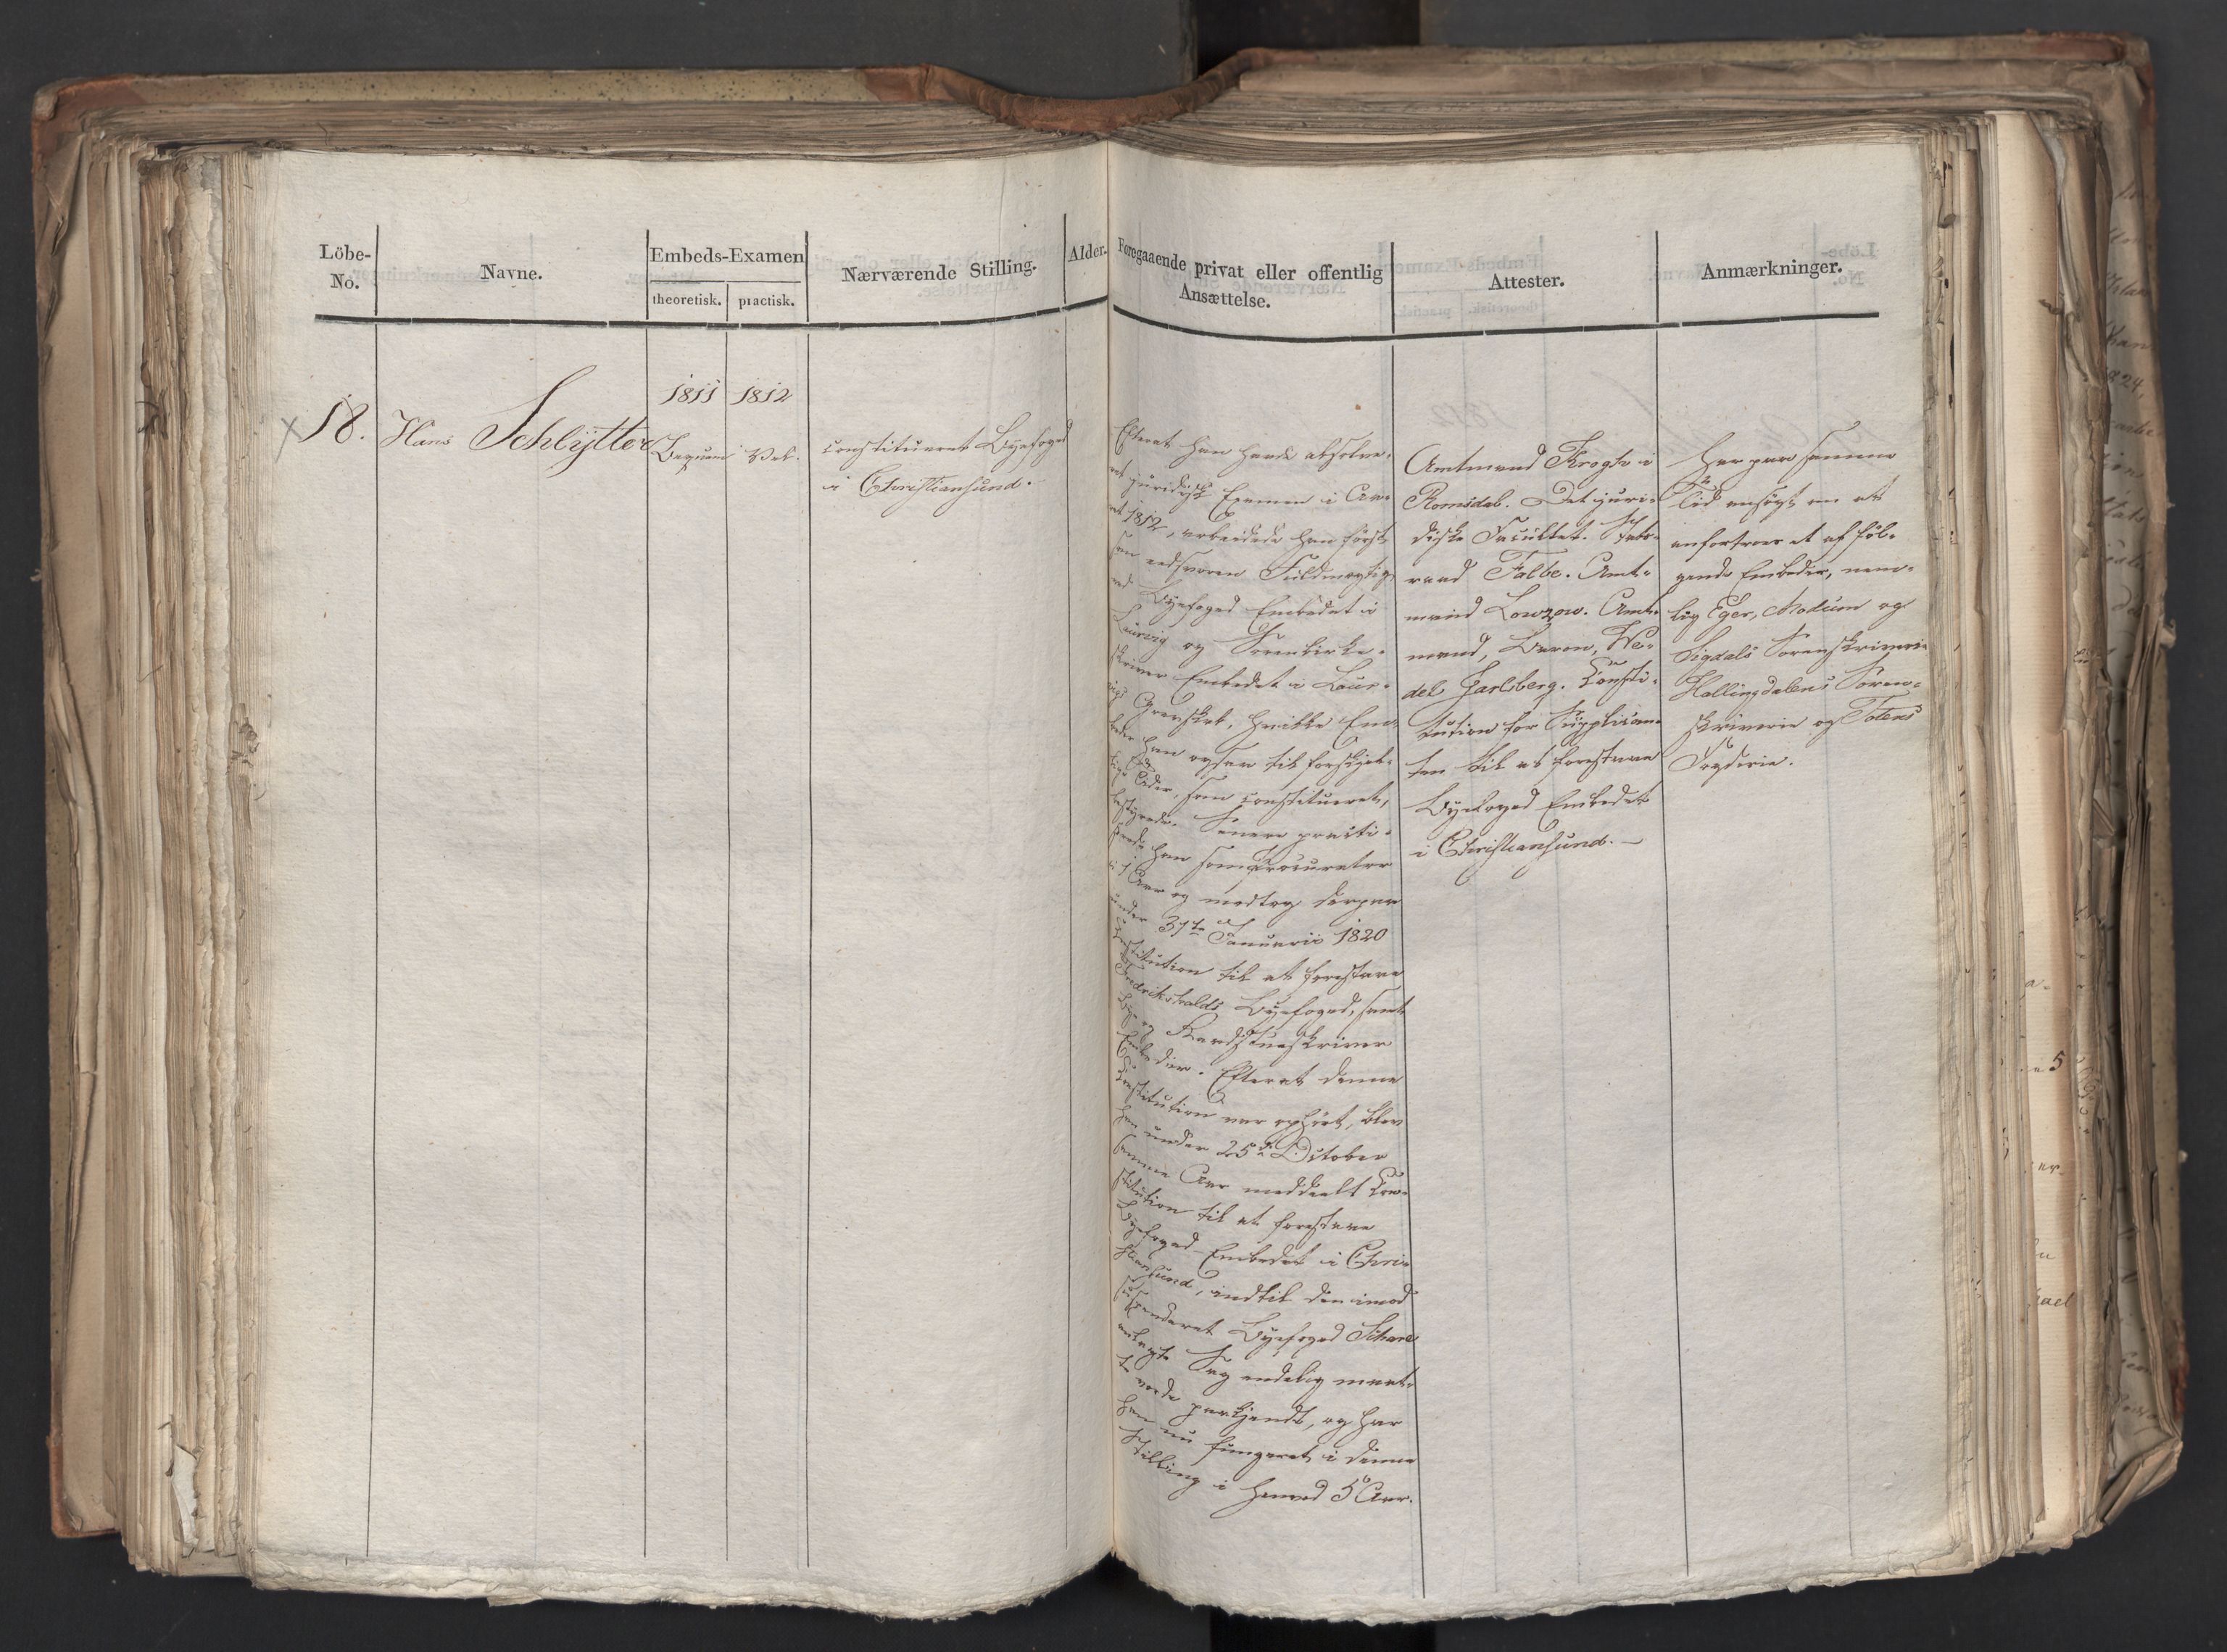 Löbe-
No.
Navne.
Embeds-Examen
theoretisk.
practisk.
Nærværende Stilling.
Alder.
Foregaaende privat eller offentlig
Ansættelse.
Attester.
Anmærkninger.
18. Hans Schlytter
1811
Bequem
1812
Vel.
constitueret Byefoged
i Christiansund.
Efterat han havde absolve-
ret juridisk Examen i Aa-
ret 1812, arbeidede han først
som edsvoren Fuldmægtig
ved Byefoged Embedet i
Laurvig og Sorenbirke-
skriver Embedet i Laur-
vigs Grevskab, hvilke Em-
beder han ogsaa til forskjel-
lige Tider, som constitueret,
bestyrede. Senere practi-
serede han som Procurator
i 1 Aar og modtog derpaa
under 31te Januarii 1820
Constitution til at forestaae
Fredrikshalds Byefoged, samt
Bye og Raadstueskriver
Embeder. Efterat denne
Constitution var ophört, blev
han under 25de October
samme Aar meddeelt Con-
stitution til at forestaae
Byefoged-Embedet i Chri-
stiansund, indtil den imod
suspenderet Byefoged
anlagte Sag endelig maat-
te vorde paakjendt, og har
han nu fungeret i denne
Stilling i henved 5 Aar.
Amtmand Krogh i
Romsdal. Det juri-
diske Facultet. Stats-
raad Falbe. Amt-
mand Lowzow. Amt-
mand, Baron, We-
del Jarlsberg. Consti-
tution for Supplican-
ten til at forestaae
Byefoged Embedet
i Christiansund. —
Har paa samme
Tid ansögt om at
anfortroes et af föl-
gende Embeder, nem-
lig Eger, Modum og
Sigdals Sorenskriverie
Hallingdalens Soren-
skriverie og Totens
Fogderie.